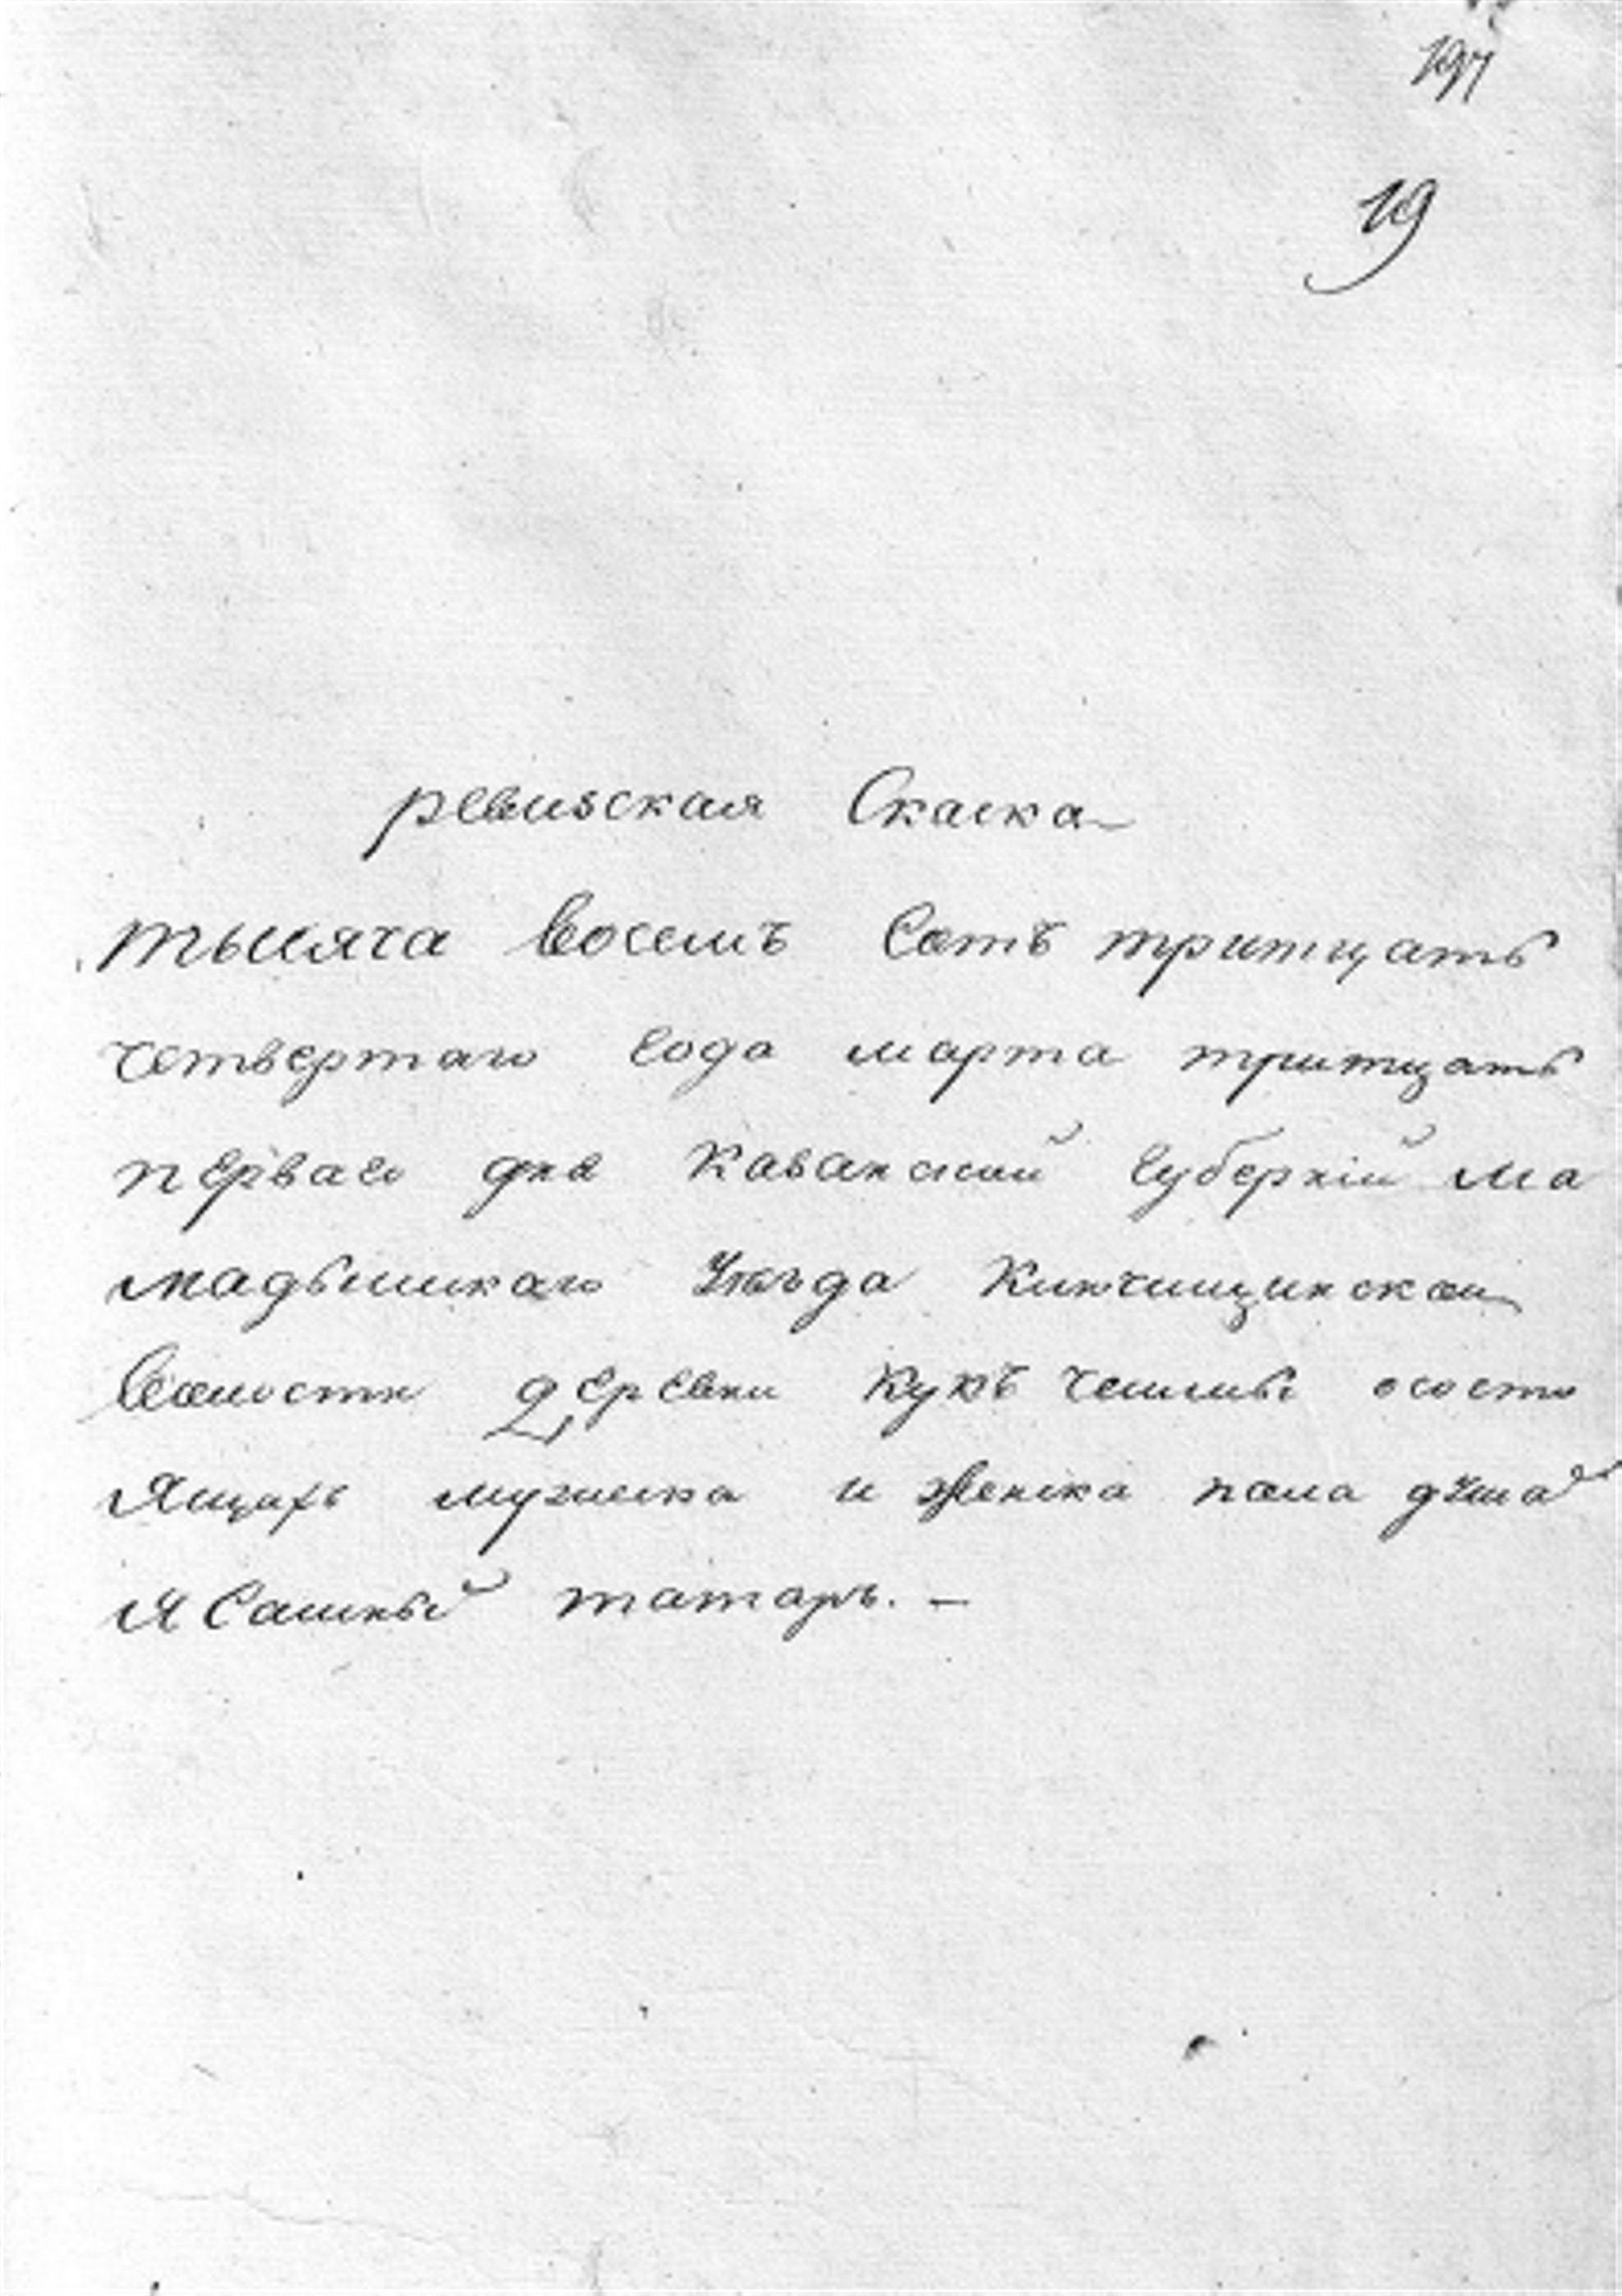 197
19
ревизская Скаска
тысяча восемъ Сотъ тритцать
четвертаго года марта тритцать
перваго дня казанской губерній ма
мадышскаго Уѣзда Кинчищинской
Волости деревни кукъ чешмы ососто
ящихъ мужеска и женска пола душа
ясашный татаръ. —